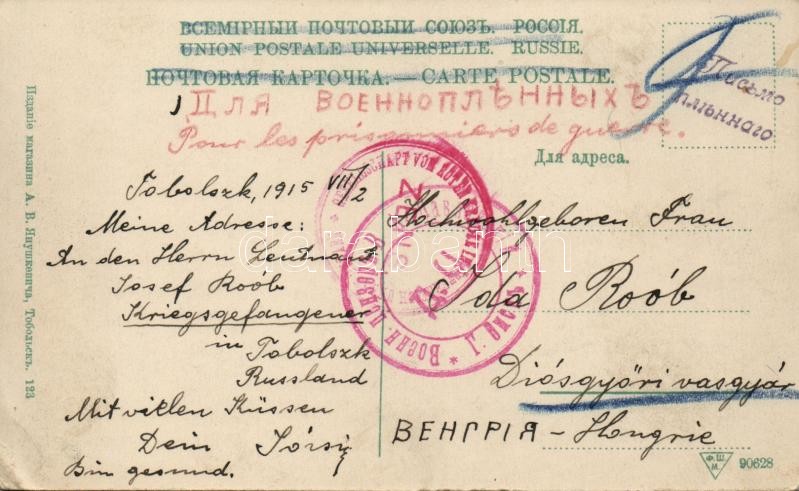 ВСЕМІРНЫЙ ПОЧТОВЫЙ СОЮЗЪ. РОССІЯ.
UNION POSTALE UNIVERSELLE. RUSSIE.
ПОЧТОВАЯ КАРТОЧКА.—CARTE POSTALE.
Письмо
плѣннаго
Для военноплѣнныхъ
Pour les prisonniers de guerre.
Для адреса.
Tobolszk, 1915 VII/2
Meine Adresse:
An den Herrn Leutnant
Josef Roób
Kriegsgefangener
in Tobolszk
Russland
Mit vielen Küssen
Dein Józsi
Bin gesund.
Hochwohlgeboren Frau
Ida Roób
Diósgyőri vasgyár
ВЕНГРІЯ - Hongrie
Изданіе магазина А. В. Янушкевича, Тобольскъ. 123
Ф.Ш.
М.
90628
darabanth.com